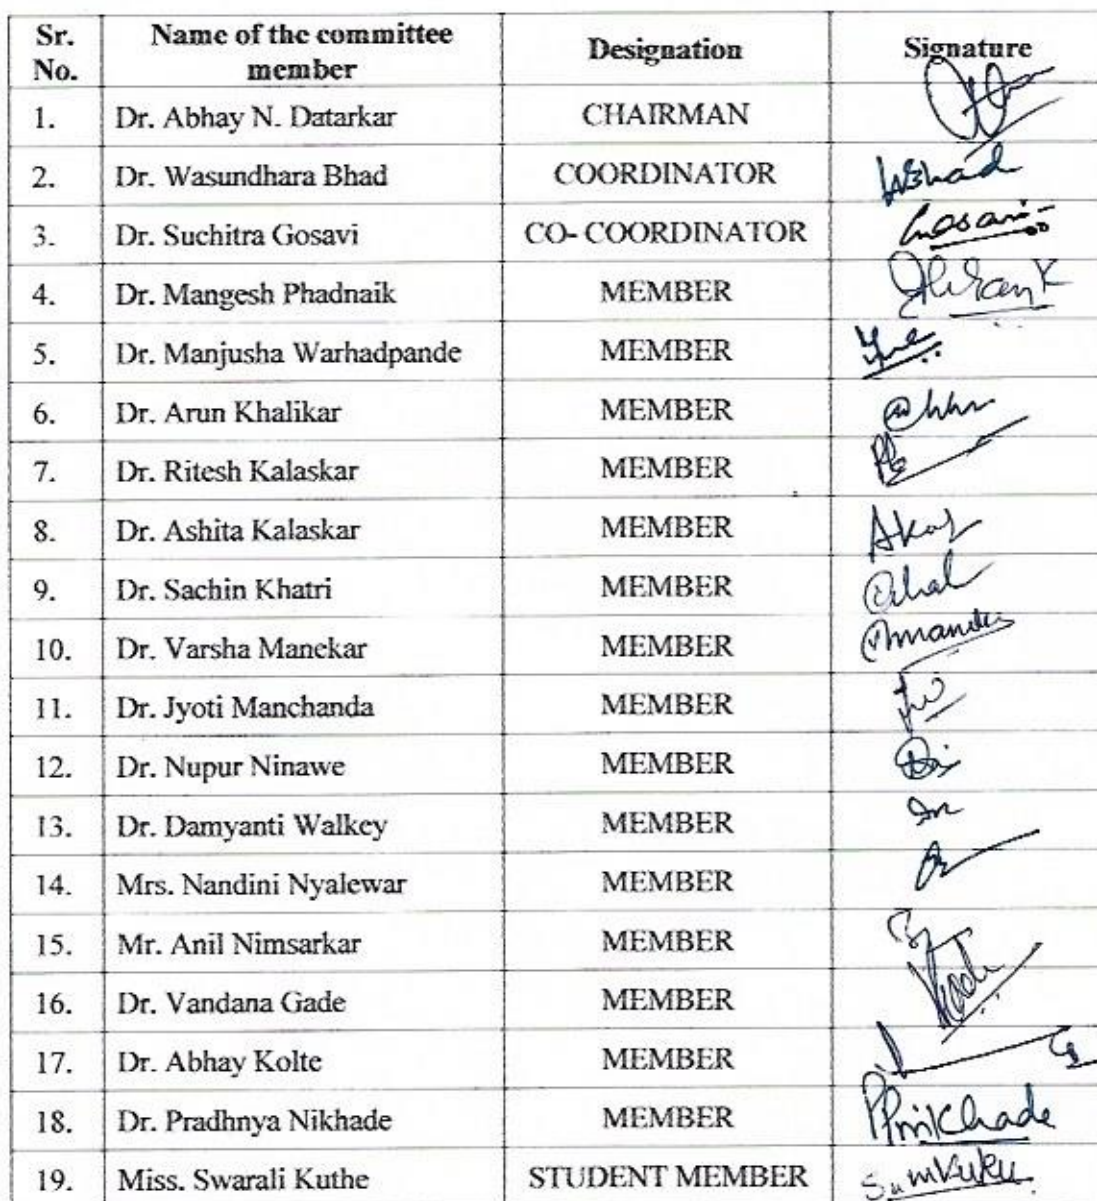 Sr. No. Name of the committee member Designation Signature
1. Dr. Abhay N. Datarkar CHAIRMAN
2. Dr. Wasundhara Bhad COORDINATOR WBhad
3. Dr. Suchitra Gosavi CO- COORDINATOR Gosavi
4. Dr. Mangesh Phadnaik MEMBER
5. Dr. Manjusha Warhadpande MEMBER
6. Dr. Arun Khalikar MEMBER
7. Dr. Ritesh Kalaskar MEMBER
8. Dr. Ashita Kalaskar MEMBER
9. Dr. Sachin Khatri MEMBER
10. Dr. Varsha Manekar MEMBER
11. Dr. Jyoti Manchanda MEMBER
12. Dr. Nupur Ninawe MEMBER
13. Dr. Damyanti Walkey MEMBER
14. Mrs. Nandini Nyalewar MEMBER
15. Mr. Anil Nimsarkar MEMBER
16. Dr. Vandana Gade MEMBER
17. Dr. Abhay Kolte MEMBER
18. Dr. Pradhnya Nikhade MEMBER PPNikhade
19. Miss. Swarali Kuthe STUDENT MEMBER